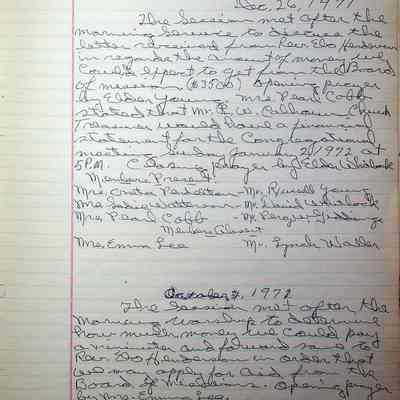 Dec, 26, 1971
The Session met after the
morning service to discuss the
letter received from Rev. Elo Henderson
in regards the amount of money we
could expect to get from the Board
of mission ($3500) Opening prayer
by Elder Young. Mrs. Pearl Cobb
stated that Mr. E. W. Calhoun Church
Treasurer would have a financial
statement for the Congregational
meeting Sunday January 2, 1972 at
5 P.M. Closing prayer by Elder
Members Present:
Mrs. Pendleton - Mr. Russell Young
Mrs. Sadie Watterson - Mr. David
Mrs. Pearl Cobb - Mr. Giddings
Members Absent
Mrs. Emma Lee Mr. Lynch Waller
October 8, 1972
The Session met after the
morning worship to determine
how much money we could pay
a minister and forward same to
Rev. Elo Henderson in order that
we may apply for aid from the
Board of Missions. Opening prayer
by Mrs. Emma Lee.